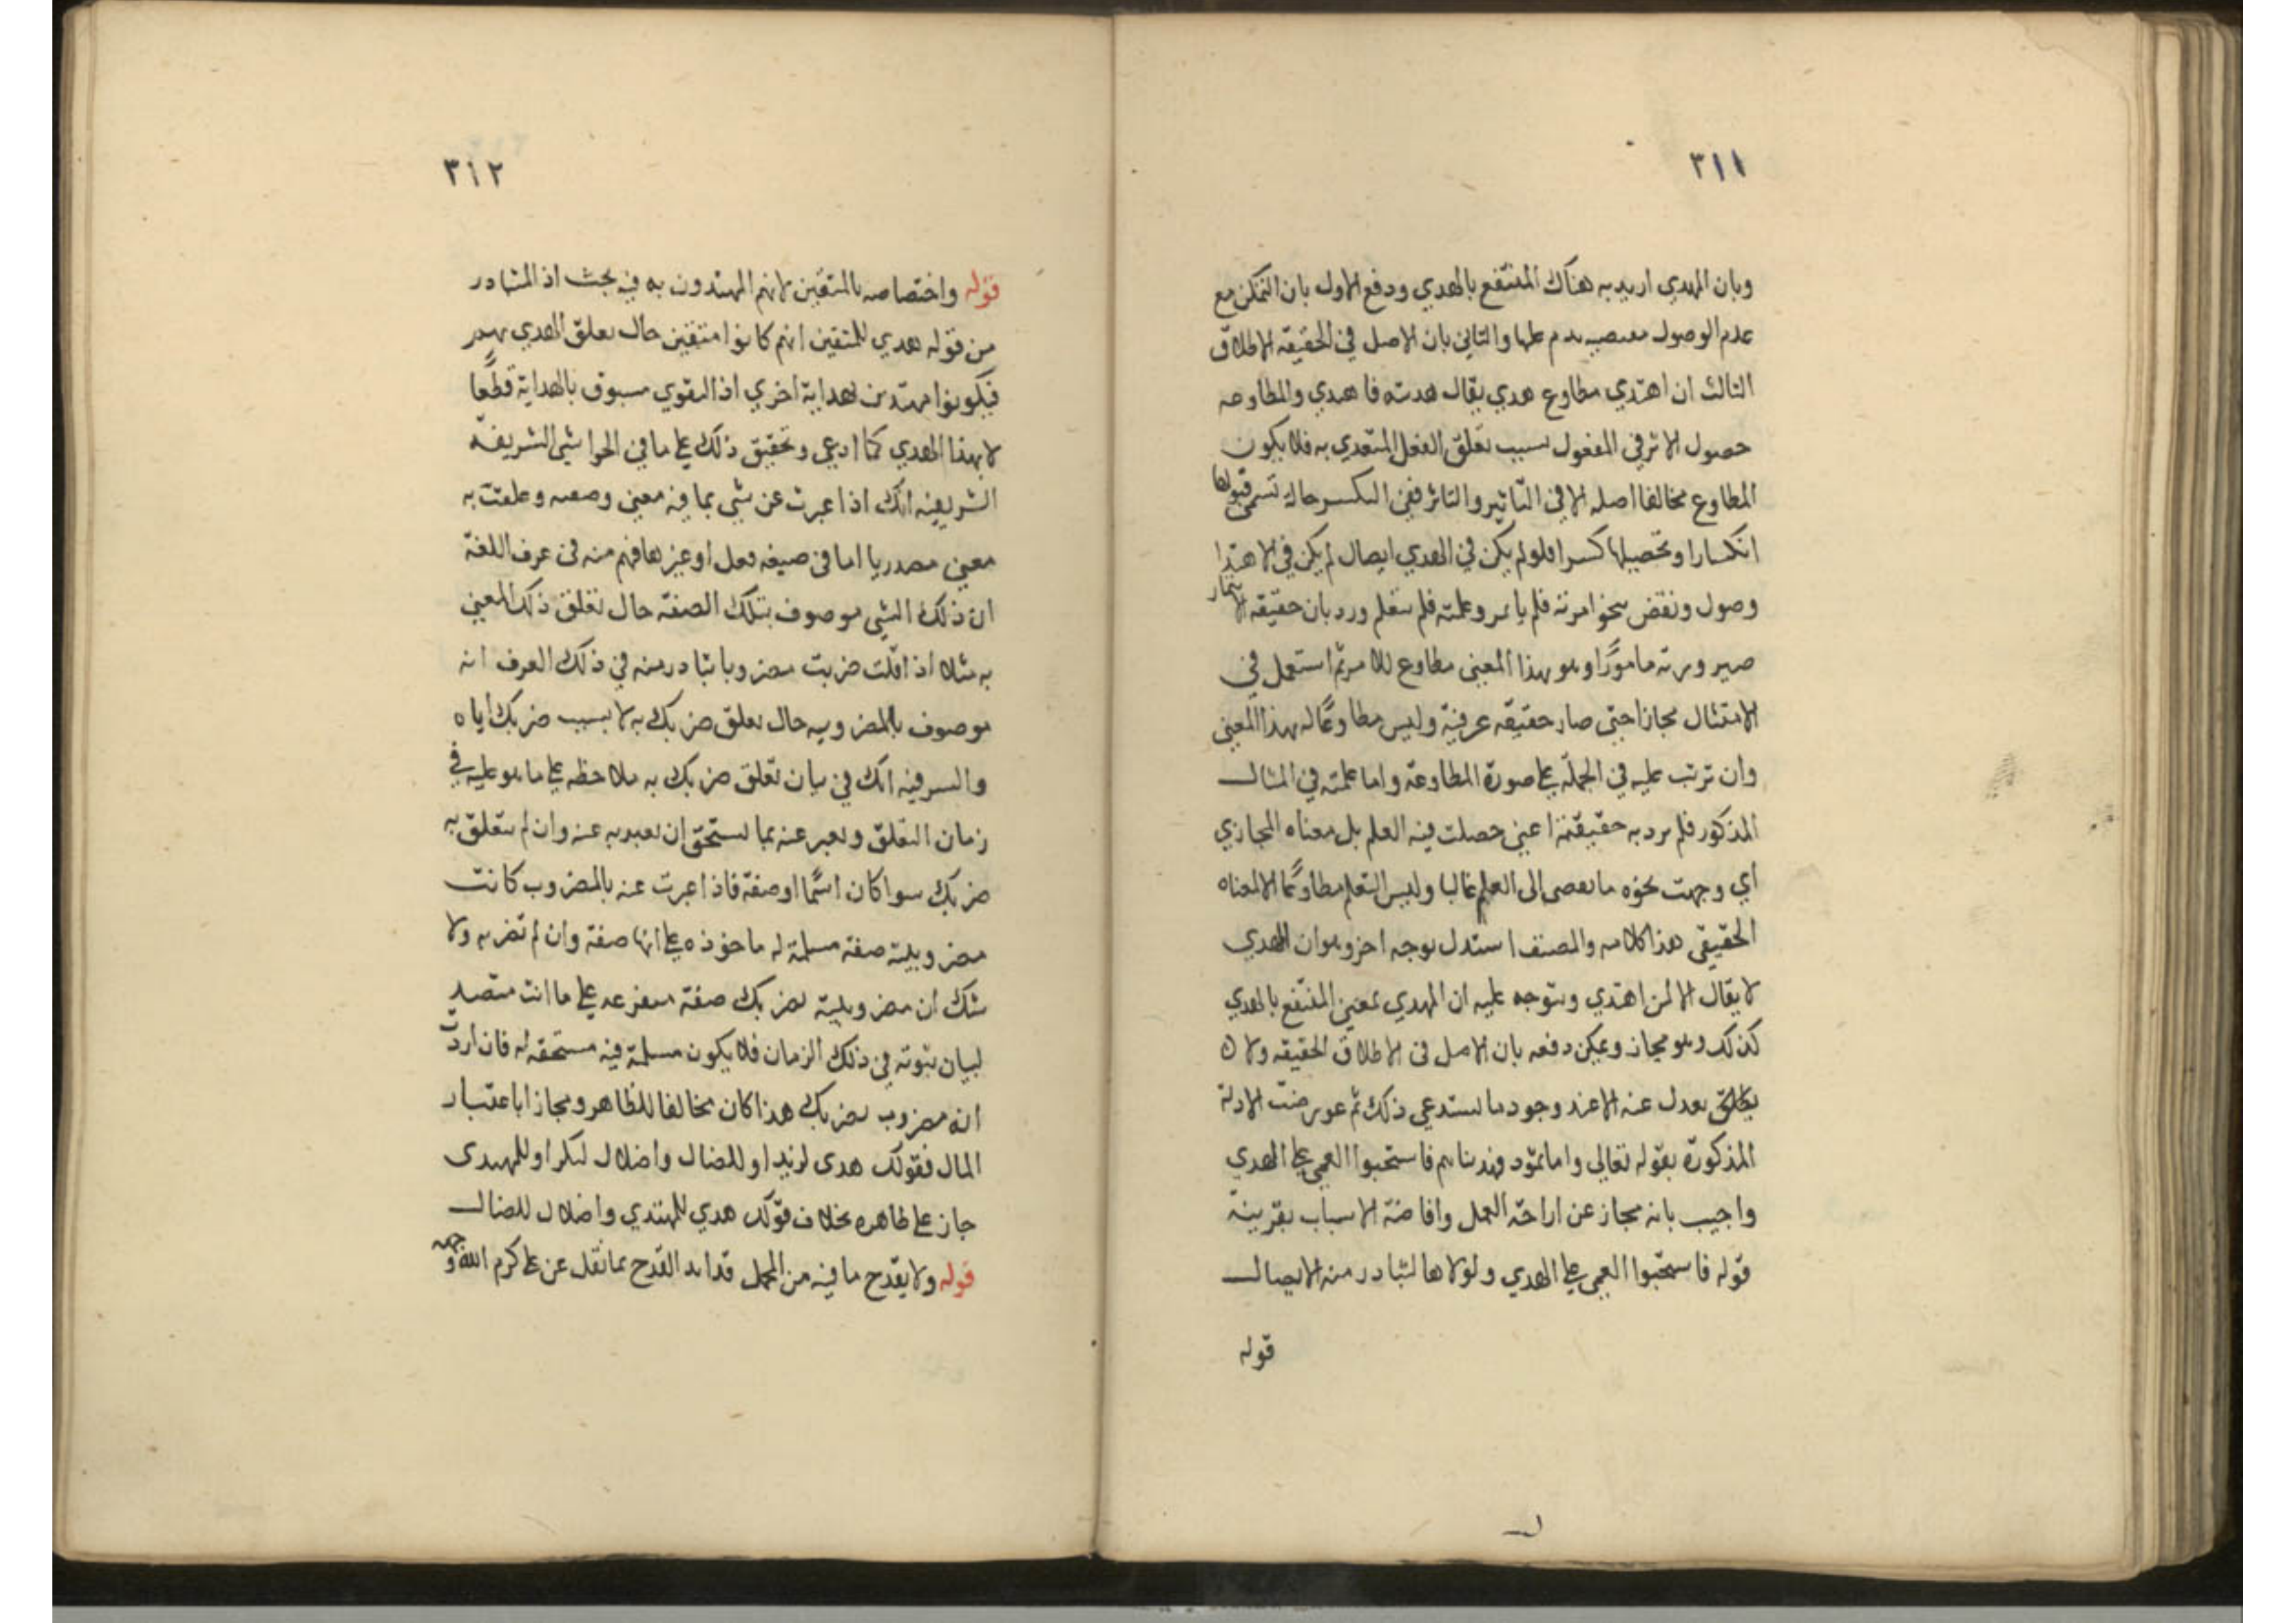 ٣١١
وبان المهدي اريد به هناك المنتفع بالهدي ودفع الاول بان التمكن مع
عدم الوصول يذم عليها والثاني بان الاصل في الحقيقة الاطلاق
الثالث ان اهتدي مطاوع هدي يقال هديته فاهتدي والمطاوعه
حصول الاثر في المفعول بسبب تعلق الفعل المتعدي به فلا يكون
المطاوع مخالفا اصله الا في التاثير والتاثر ففي الكسر حاله تسمى قبولها
انكسارا وتحصيلها كسرا فلو لم يكن في الهدي ايصال لم يكن في الاهتدا
وصول ونقض بنحو امرته فلم ياتمر وعلمته فلم يتعلم ورد بان حقيقه الايتمار
صيرورته مامورًا وهو بهذا المعني مطاوع للامر ثم استعمل في
الامتثال مجازا حتى صار حقيقه عرفية وليس مطاوعًا له بهذا المعني
وان ترتب عليه في الجملة علي صورة المطاوعة واما علمته في المثال
المذكور فلم يرد به حقيقته اعني حصلت فيه العلم بل معناه المجازي
اي وجهت نحوه ما يفضي الى العلم غالبا وليس التعلم مطاوعًا الا لمعناه
الحقيقي هذا كلامه والمصنف استدل بوجه اخر وهو ان المهدي
لا يقال الا لمن اهتدي ويتوجه عليه ان المهدي بمعني المنتفع بالهدي
كذلك وهو مجاز ويمكن دفعه بان الاصل في الاطلاق الحقيقه ولا
يعدل عنه الا عند وجود ما يستدعي ذلك ثم عورضت الادلة
المذكورة بقوله تعالي واما ثمود فهديناهم فاستحبوا العمي علي الهدي
واجيب بانه مجاز عن ازاحة العلل وافاضة الاسباب بقرينة
قوله فاستحبوا العمي علي الهدي ولولاها لتبادر منه الايصال
قوله
٣١٢
قوله واختصاصه بالمتقين لانهم المهتدون به فيه بحث اذ المتبادر
من قوله هدي للمتقين انهم كانوا متقين حال تعلق الهدي بهم
فيكونوا مهتدين لهداية اخري اذ التقوي مسبوق بالهداية قطعًا
لا بهذا الهدي كما ادعي وتحقيق ذلك علي ما في الحواشي الشريفة
الشريفيه انك اذا عبرت عن شي بما فيه معني وصفيه وعلقت به
معني مصدريا اما في صيغه فعل او غيرها فهم منه في عرف اللغة
ان ذلك الشي موصوف بتلك الصفة حال تعلق ذلك المعني
به مثلا اذا قلت ضربت مضروبا تبادر منه في ذلك العرف انه
موصوف بالمضروبيه حال تعلق ضربك به لا بسبب ضربك اياه
والسر فيه انك في بيان تعلق ضربك به ملاحظه علي ما هو عليه في
زمان التعلق وتعبر عنه بما يستحق ان يعبر به عنه وان لم يتعلق به
ضربك سوا كان اسمًا او صفة فاذا عبرت عنه بالمضروب كانت
مضروبيته صفة مسلمة له ماخوذه علي انها صفة وان لم تضربه ولا
شك ان مضروبيته بضربك صفة متفرعه علي ما انت متصد
لبيان ثبوته في ذلك الزمان فلا يكون مسلمة فيه مستحقه له فان اردت
انه مضروب بضربك هذا كان مخالفا للظاهر ومجازا باعتبار
المال فقولك هدى لزيد او للضال واضلال لبكر او للمهتدى
جاز علي ظاهره بخلاف قولك هدي للمهتدي واضلال للضال
قوله ولا يقدح ما فيه من المجمل القدح بما نقل عن علي كرم الله وجهه